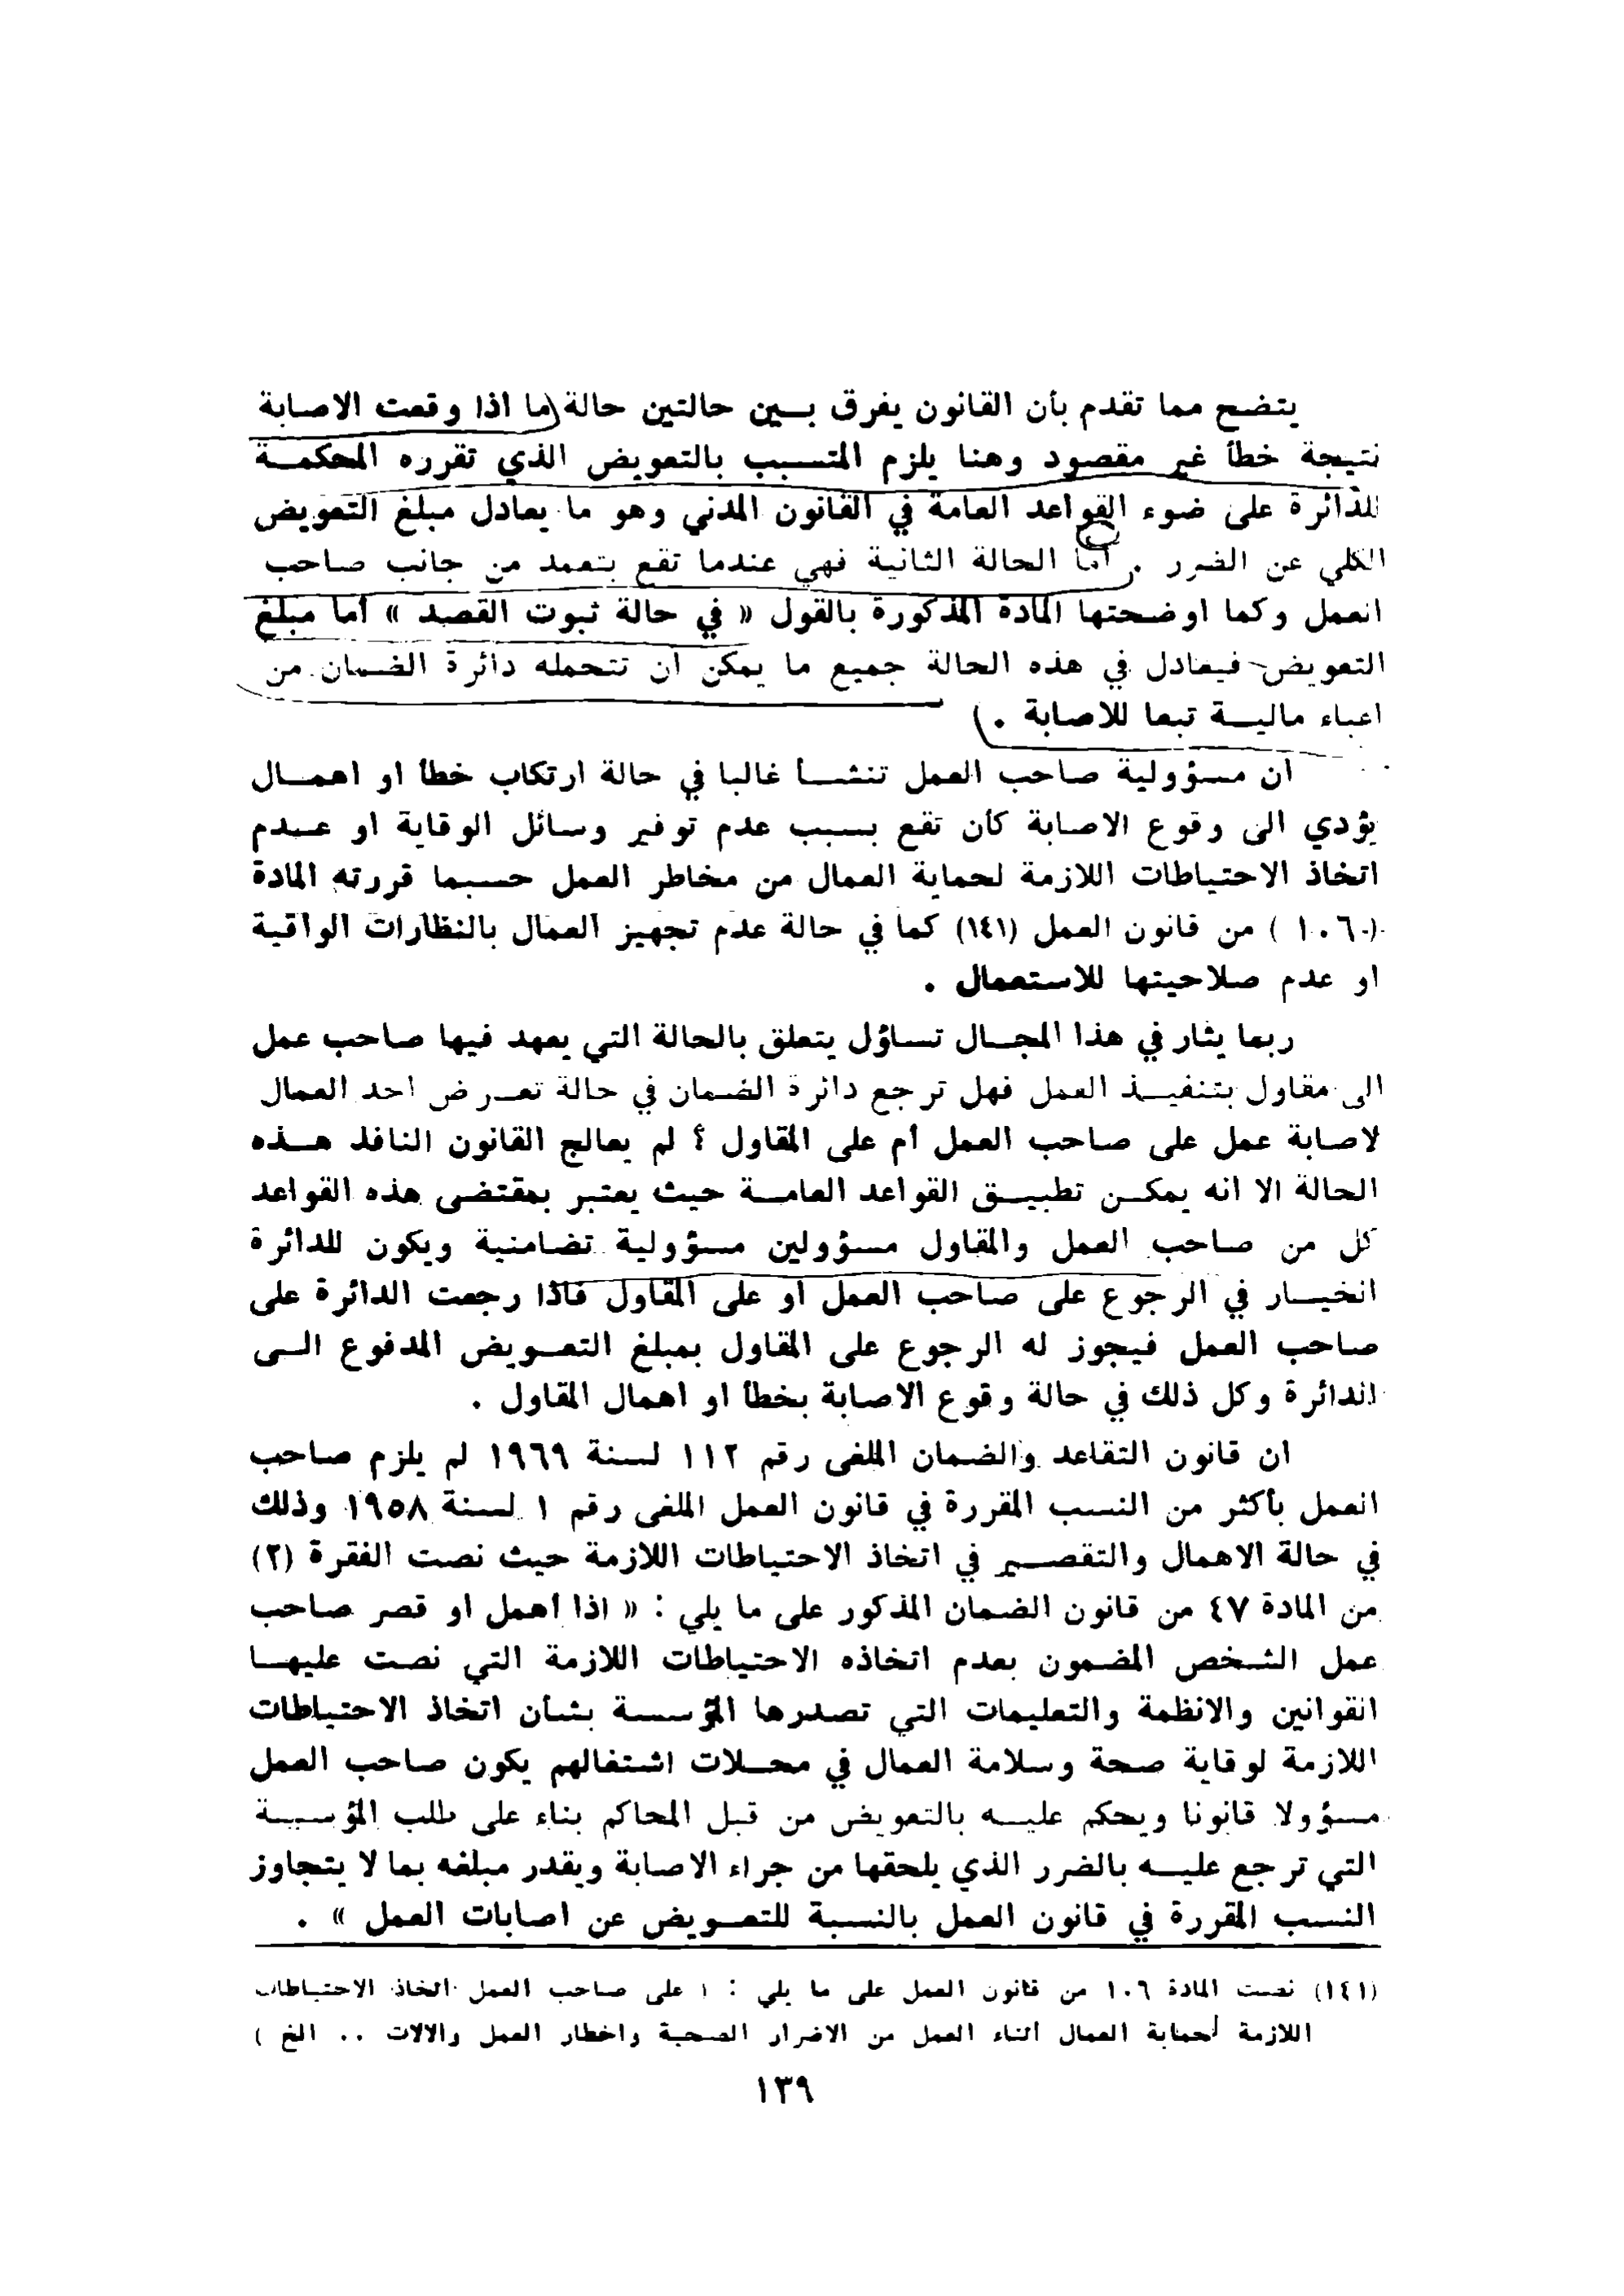 يتضح مما تقدم بأن القانون يفرق بين حالتين حالة (ما اذا وقعت الاصابة
نتيجة خطأ غير مقصود وهنا يلزم المتسبب بالتعويض الذي تقرره المحكمة
للدائرة على ضوء القواعد العامة في القانون المدني وهو ما يعادل مبلغ التعويض
الكلي عن الضرر . أما الحالة الثانية فهي عندما تقع بتعمد من جانب صاحب
العمل وكما اوضحتها المادة المذكورة بالقول « في حالة ثبوت القصد » أما مبلغ
التعويض فيعادل في هذه الحالة جميع ما يمكن ان تتحمله دائرة الضمان من
اعباء مالية تبعا للاصابة . )
ان مسؤولية صاحب العمل تنشأ غالبا في حالة ارتكاب خطأ او اهمال
يؤدي الى وقوع الاصابة كأن تقع بسبب عدم توفير وسائل الوقاية او عدم
اتخاذ الاحتياطات اللازمة لحماية العمال من مخاطر العمل حسبما قررته المادة
(١٠٦) من قانون العمل (١٤١) كما في حالة عدم تجهيز العمال بالنظارات الواقية
او عدم صلاحيتها للاستعمال .
ربما يثار في هذا المجال تساؤل يتعلق بالحالة التي يعهد فيها صاحب عمل
الى مقاول بتنفيذ العمل فهل ترجع دائرة الضمان في حالة تعرض احد العمال
لاصابة عمل على صاحب العمل أم على المقاول ؟ لم يعالج القانون النافذ هذه
الحالة الا انه يمكن تطبيق القواعد العامة حيث يعتبر بمقتضى هذه القواعد
كل من صاحب العمل والمقاول مسؤولين مسؤولية تضامنية ويكون للدائرة
الخيار في الرجوع على صاحب العمل او على المقاول فاذا رجعت الدائرة على
صاحب العمل فيجوز له الرجوع على المقاول بمبلغ التعويض المدفوع الى
الدائرة وكل ذلك في حالة وقوع الاصابة بخطأ او اهمال المقاول .
ان قانون التقاعد والضمان الملغى رقم ١١٢ لسنة ١٩٦٩ لم يلزم صاحب
العمل بأكثر من النسب المقررة في قانون العمل الملغى رقم ١ لسنة ١٩٥٨ وذلك
في حالة الاهمال والتقصير في اتخاذ الاحتياطات اللازمة حيث نصت الفقرة (٢)
من المادة ٤٧ من قانون الضمان المذكور على ما يلي : « اذا أهمل او قصر صاحب
عمل الشخص المضمون بعدم اتخاذه الاحتياطات اللازمة التي نصت عليها
القوانين والانظمة والتعليمات التي تصدرها المؤسسة بشأن اتخاذ الاحتياطات
اللازمة لوقاية صحة وسلامة العمال في محلات اشتغالهم يكون صاحب العمل
مسؤولا قانونا ويحكم عليه بالتعويض من قبل المحاكم بناء على طلب المؤسسة
التي ترجع عليه بالضرر الذي يلحقها من جراء الاصابة ويقدر مبلغه بما لا يتجاوز
النسب المقررة في قانون العمل بالنسبة للتعويض عن اصابات العمل » .
(١٤١) نصت المادة ١٠٦ من قانون العمل على ما يلي : ( على صاحب العمل اتخاذ الاحتياطات
اللازمة لحماية العمال اثناء العمل من الاضرار الصحية واخطار العمل والالات .. الخ )
١٣٩